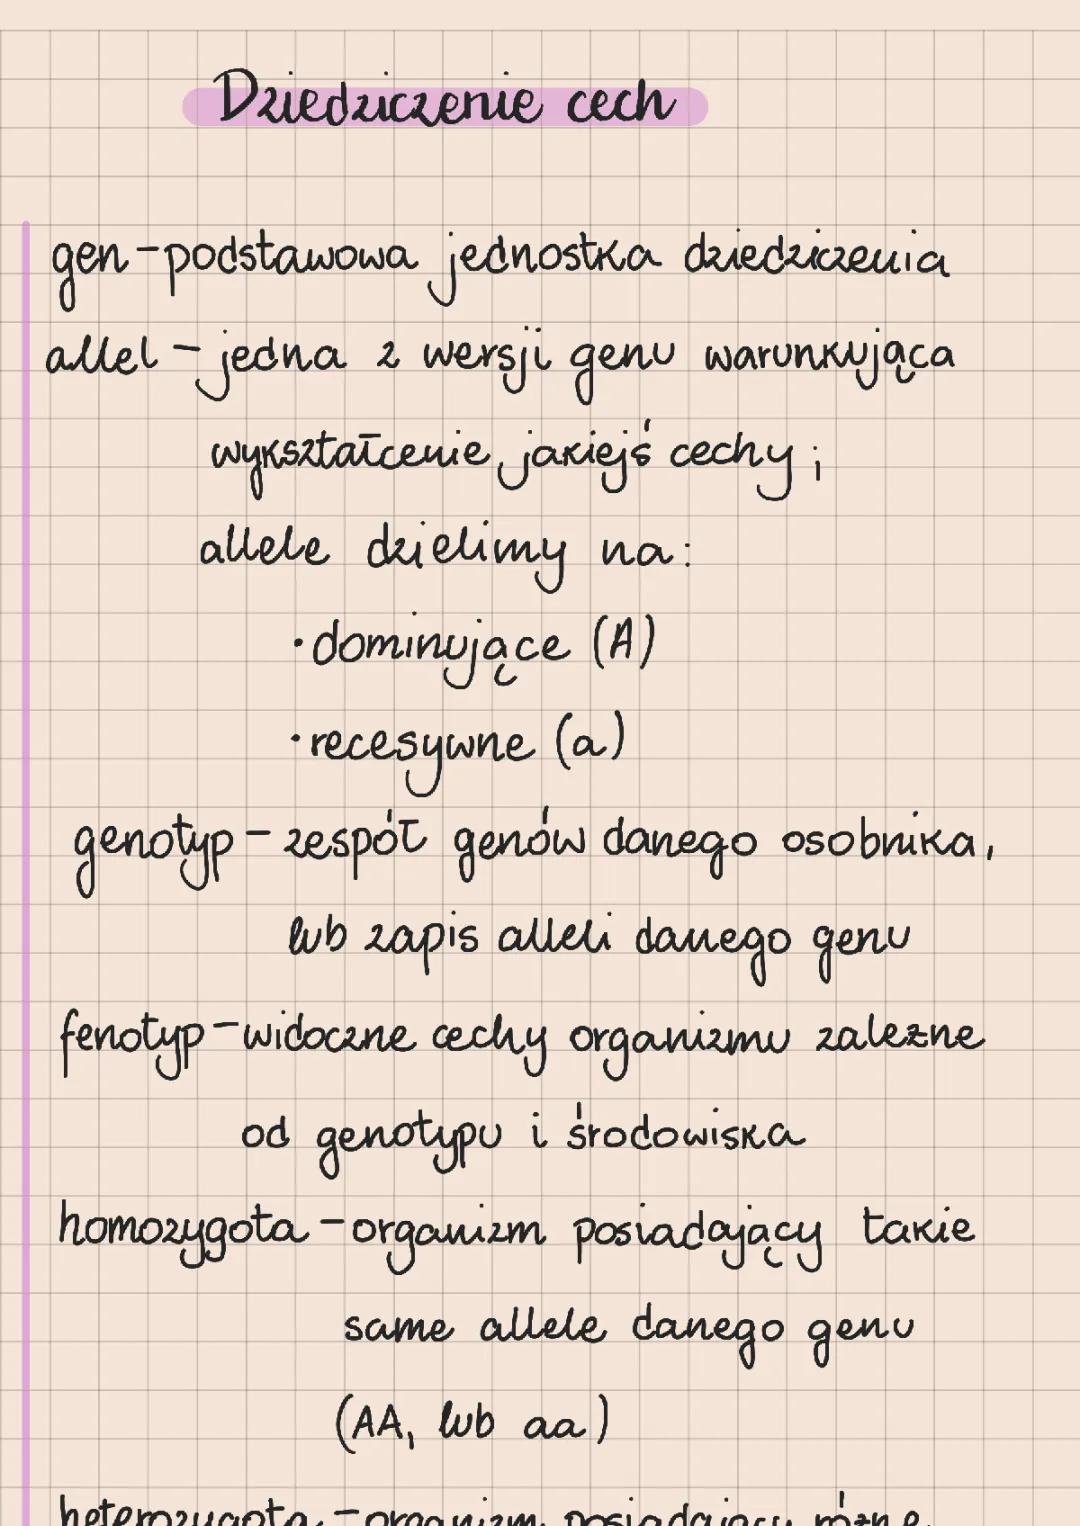 Dziedziczenie cech
gen - podstawowa jednostka dziedziczenia
allel - jedna z wersji genu warunkująca
wykształcenie jakiejś cechy;
allele dzielimy na:
• dominujące (A)
• recesywne (a)
genotyp - zespół genów danego osobnika,
lub zapis alleli danego genu
fenotyp - widoczne cechy organizmu zależne
od genotypu i środowiska
homozygota - organizm posiadający takie
same allele danego genu
(AA, lub aa)
heterozygota - organizm posiadający różne